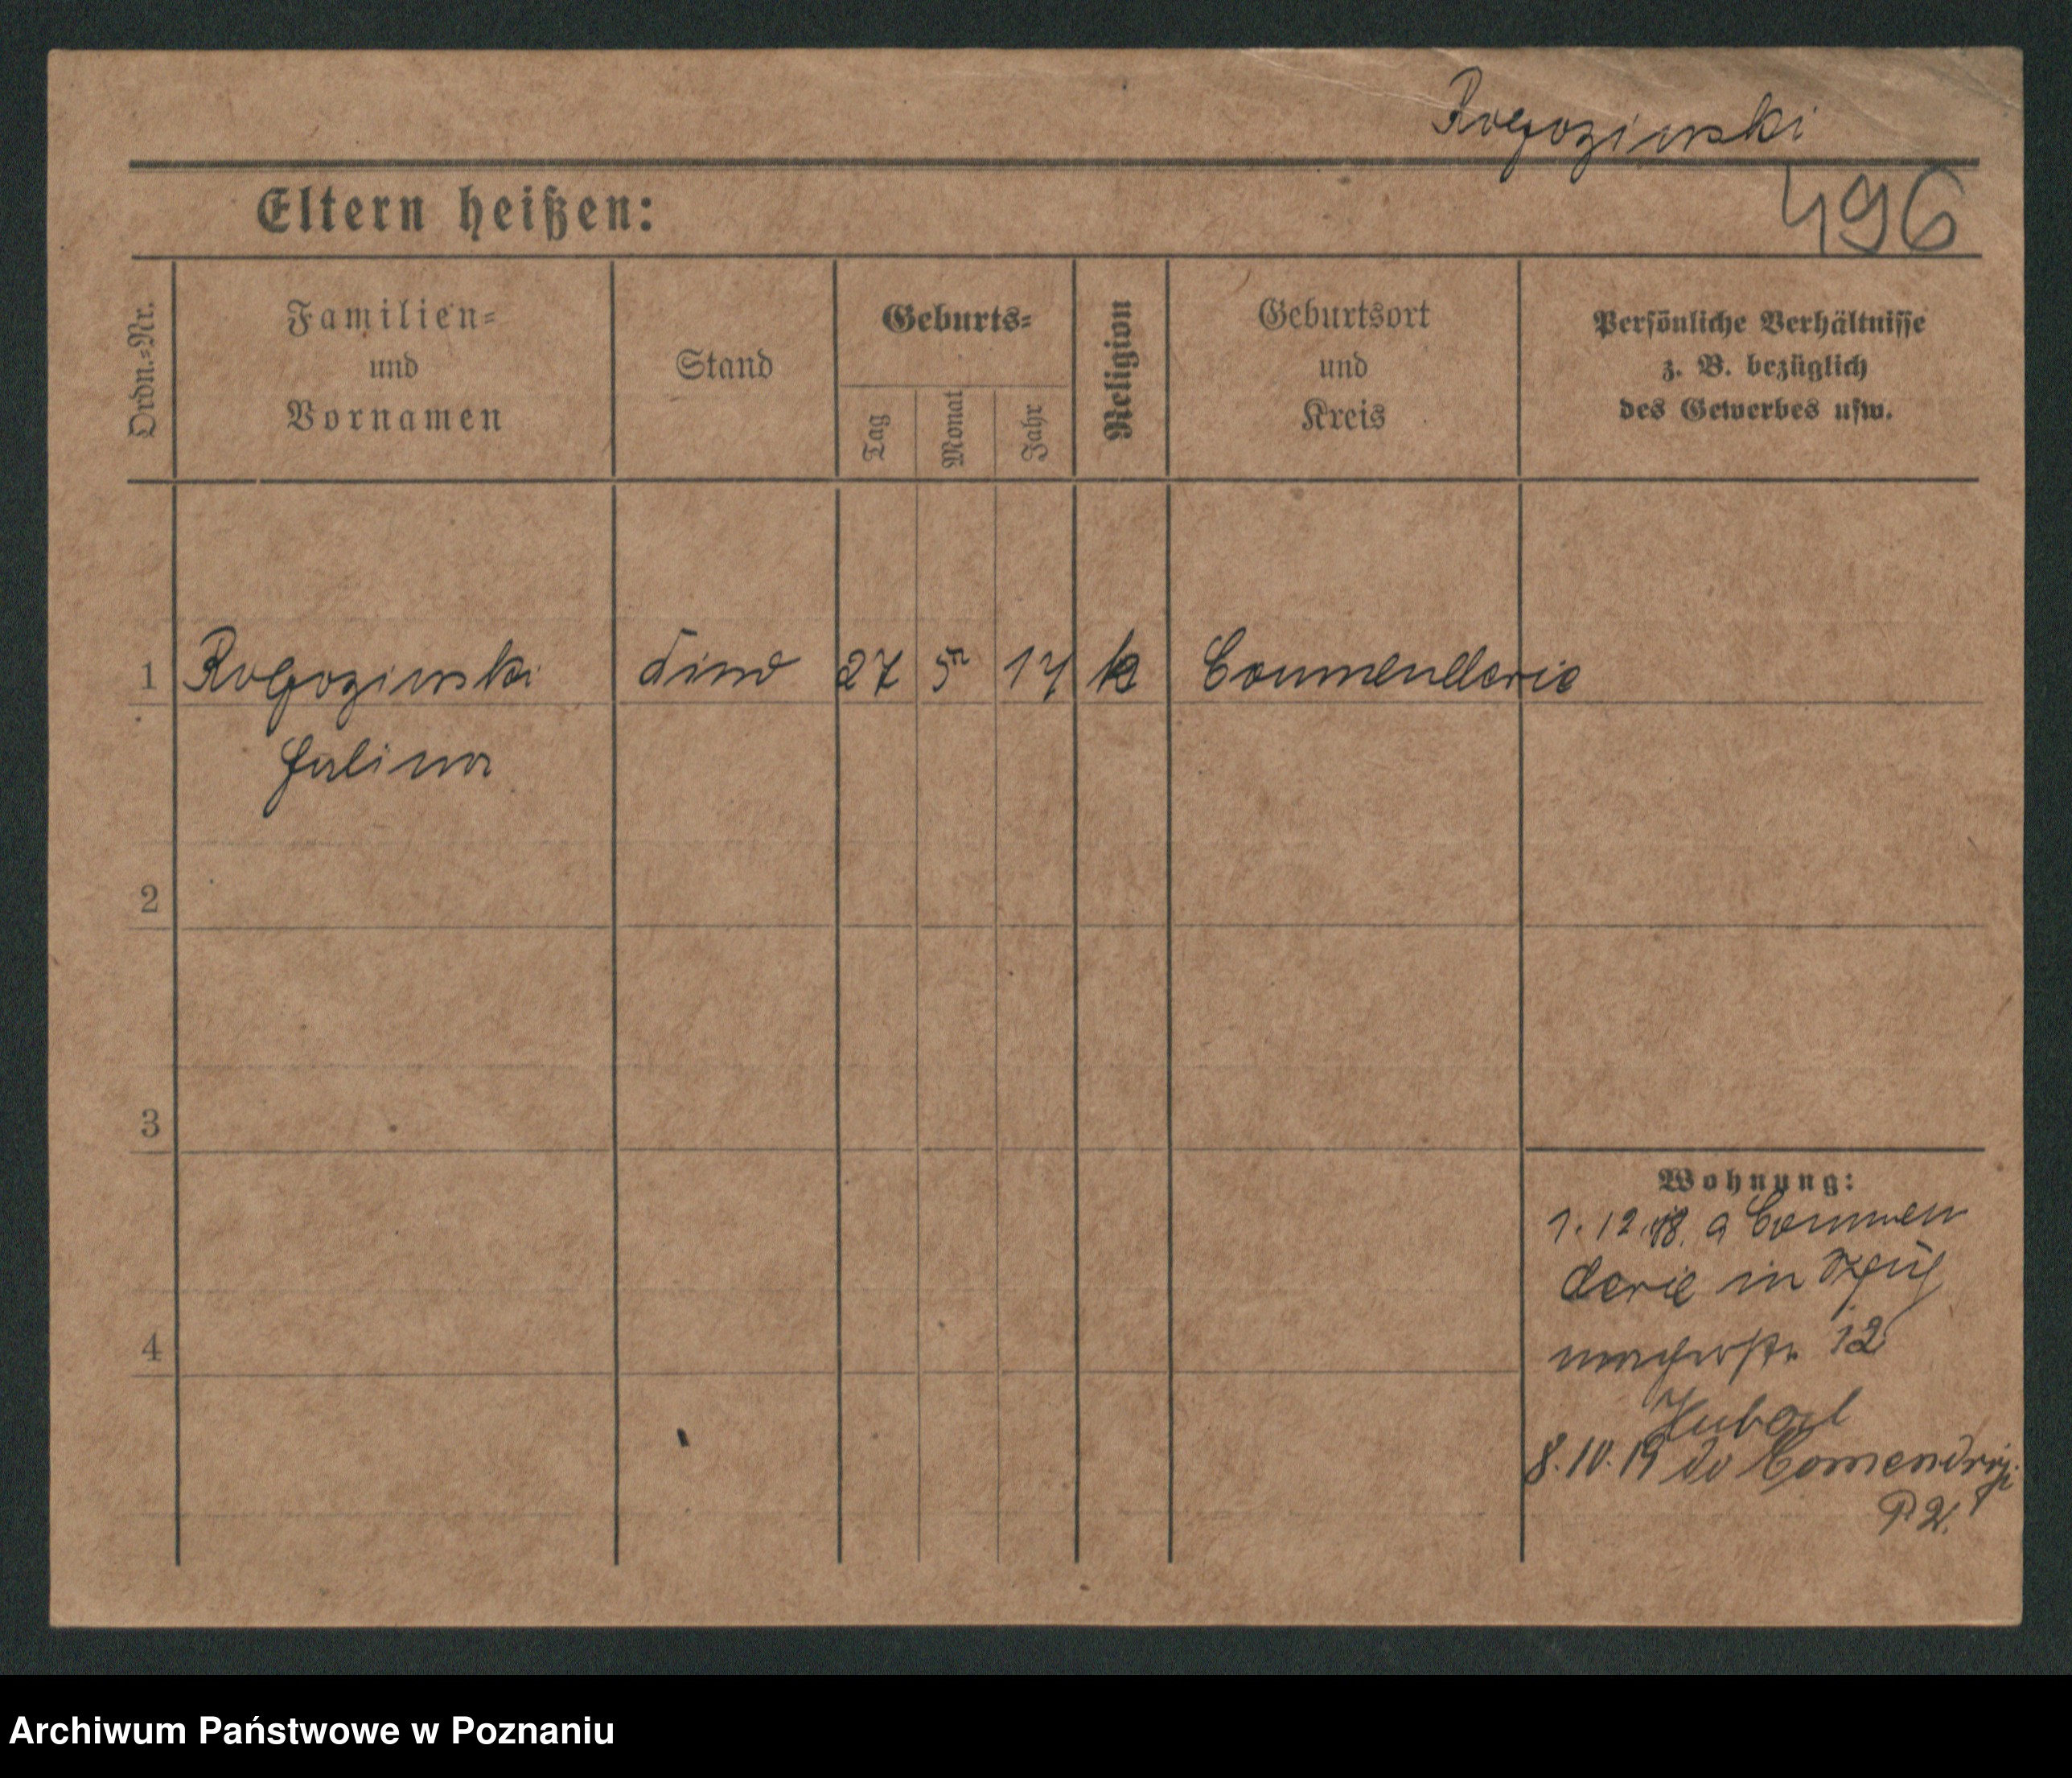 Rogozinski
Eltern heißen:
496
Ordn.=Nr.
Familien=
und
Vornamen
Stand
Geburts=
Tag
Monat
Jahr
Religion
Geburtsort
und
Kreis
Persönliche Verhältnisse
z. B. bezüglich
des Gewerbes usw.
1 Rogozinski Kind 27 5 17 k Commenderie
Halina
2
3
4
Wohnung:
1. 12. 18. a Commen
derie in
12
8. IV. 19 do
Archiwum Państwowe w Poznaniu